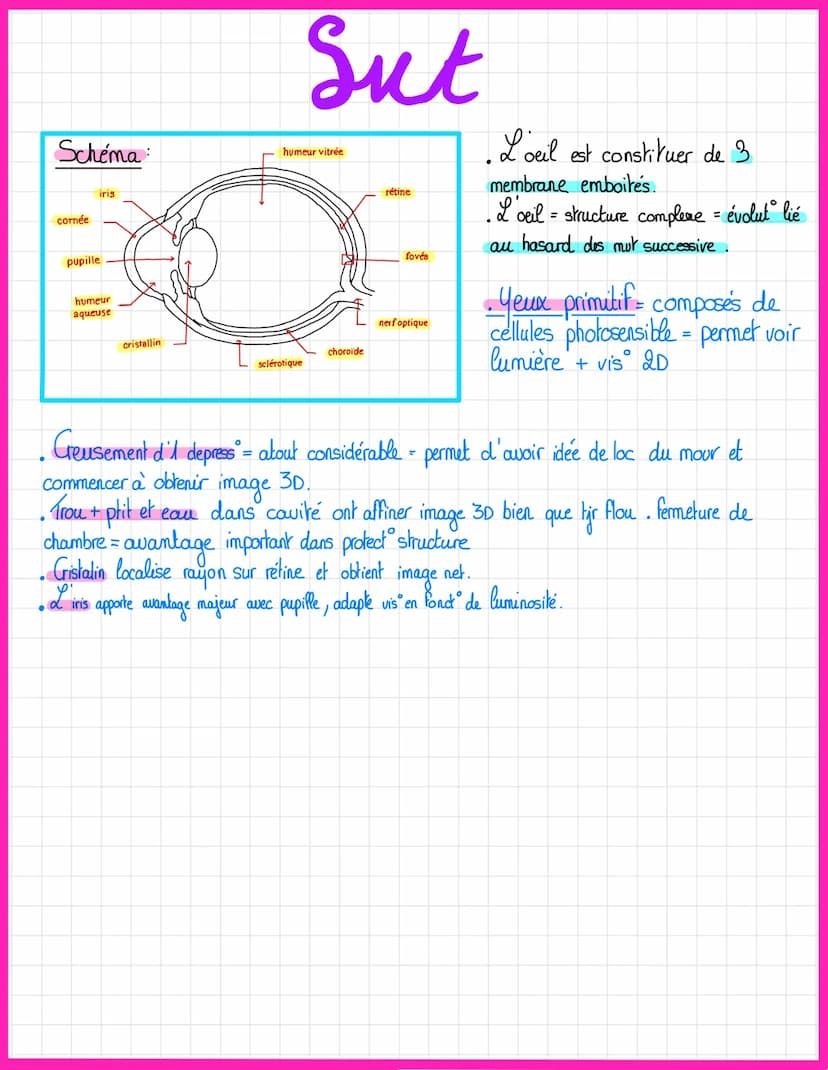 Svt
Schéma :
humeur vitrée
iris
rétine
cornée
pupille
fovéa
humeur
aqueuse
nerf optique
cristallin
choroïde
sclérotique
. L'oeil est constituer de 3
membrane emboités.
. L'oeil = structure complexe = évolut° lié
au hasard des mut successive.
. Yeux primitif = composés de
cellules photosensible = permet voir
lumière + vis° 2D
. Creusement d'1 depress° = atout considérable = permet d'avoir idée de loc du mouv et
commencer à obtenir image 3D.
. Trou + ptit et eau dans cavité ont affiner image 3D bien que tjr flou . fermeture de
chambre = avantage important dans protect° structure
. Cristalin localise rayon sur rétine et obtient image net.
. L'iris apporte avantage majeur avec pupille, adapte vis° en fonct° de luminosité.